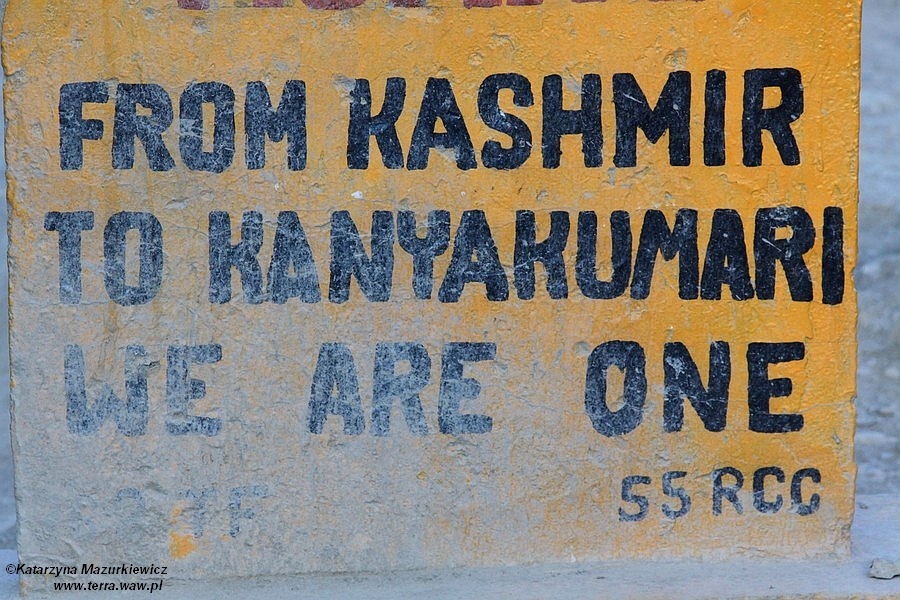 FROM KASHMIR
TO KANYAKUMARI
WE ARE ONE
55 RCC
©Katarzyna Mazurkiewicz
www.terra.waw.pl